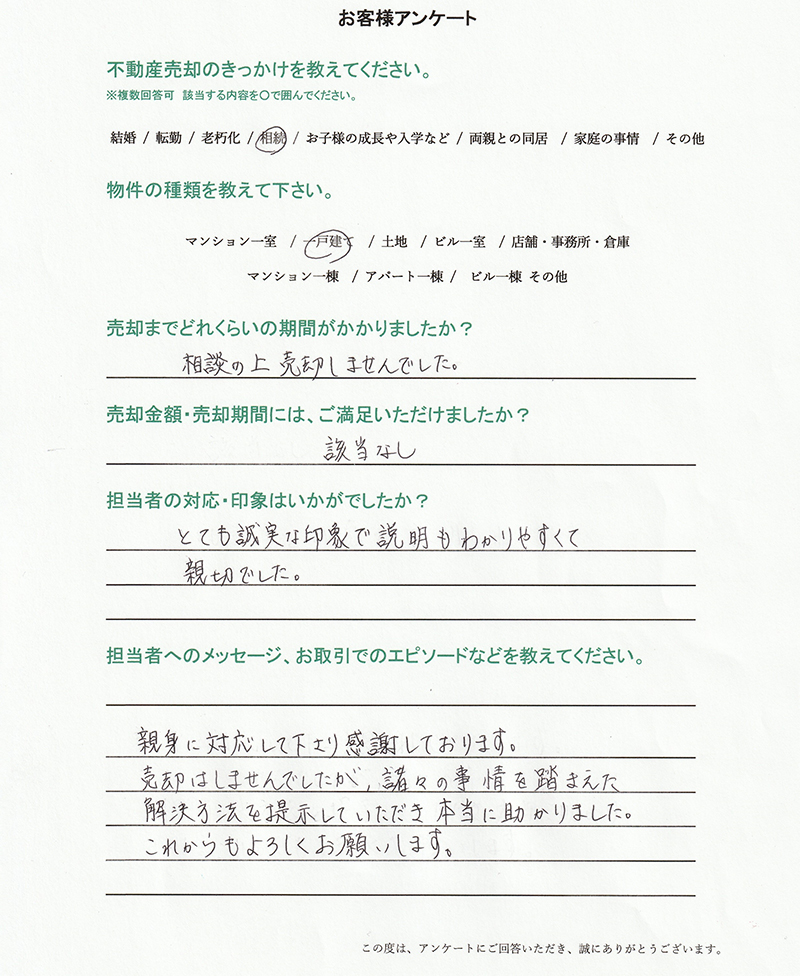 お客様アンケート
不動産売却のきっかけを教えてください。
※複数回答可 該当する内容を〇で囲んでください。
結婚 / 転勤 / 老朽化 / 相続 / お子様の成長や入学など / 両親との同居 / 家庭の事情 / その他
物件の種類を教えて下さい。
マンション一室 / 一戸建て / 土地 / ビル一室 / 店舗・事務所・倉庫
マンション一棟 / アパート一棟 / ビル一棟 その他
売却までどれくらいの期間がかかりましたか？
相談の上 売却しませんでした。
売却金額・売却期間には、ご満足いただけましたか？
該当なし
担当者の対応・印象はいかがでしたか？
とても誠実な印象で説明もわかりやすくて
親切でした。
担当者へのメッセージ、お取引でのエピソードなどを教えてください。
親身に対応して下さり感謝しております。
売却はしませんでしたが、諸々の事情を踏まえた
解決方法を提示していただき本当に助かりました。
これからもよろしくお願いします。
この度は、アンケートにご回答いただき、誠にありがとうございます。